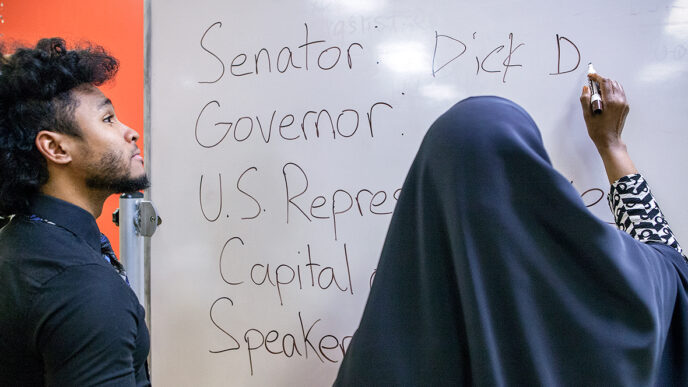 Senator: Dick D
Governor:
U.S. Repres
Capital
Speaker